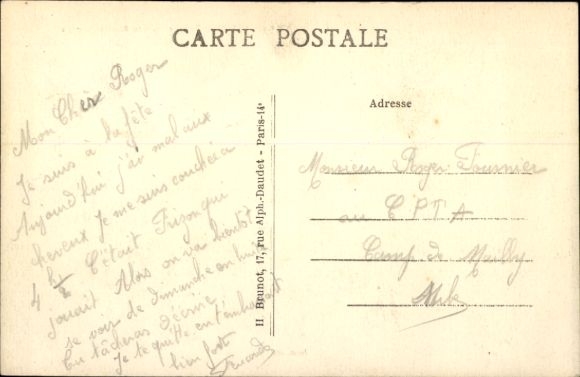 CARTE POSTALE
Mon Cher Roger
Je suis à la fête
Aujourd'hui j'ai mal aux
cheveux Je me suis couché à
4 h ½ C'était Frizon qui
jouait Alors on va bientôt
se voir de dimanche en huit
Tu tâcheras d'écrire
Je te quitte en t'embrassant
bien fort
H Brunot, 17, rue Alph.-Daudet - Paris-14e
Adresse
Monsieur Roger Fournier
au C P T A
Camp de Mailly
Aube